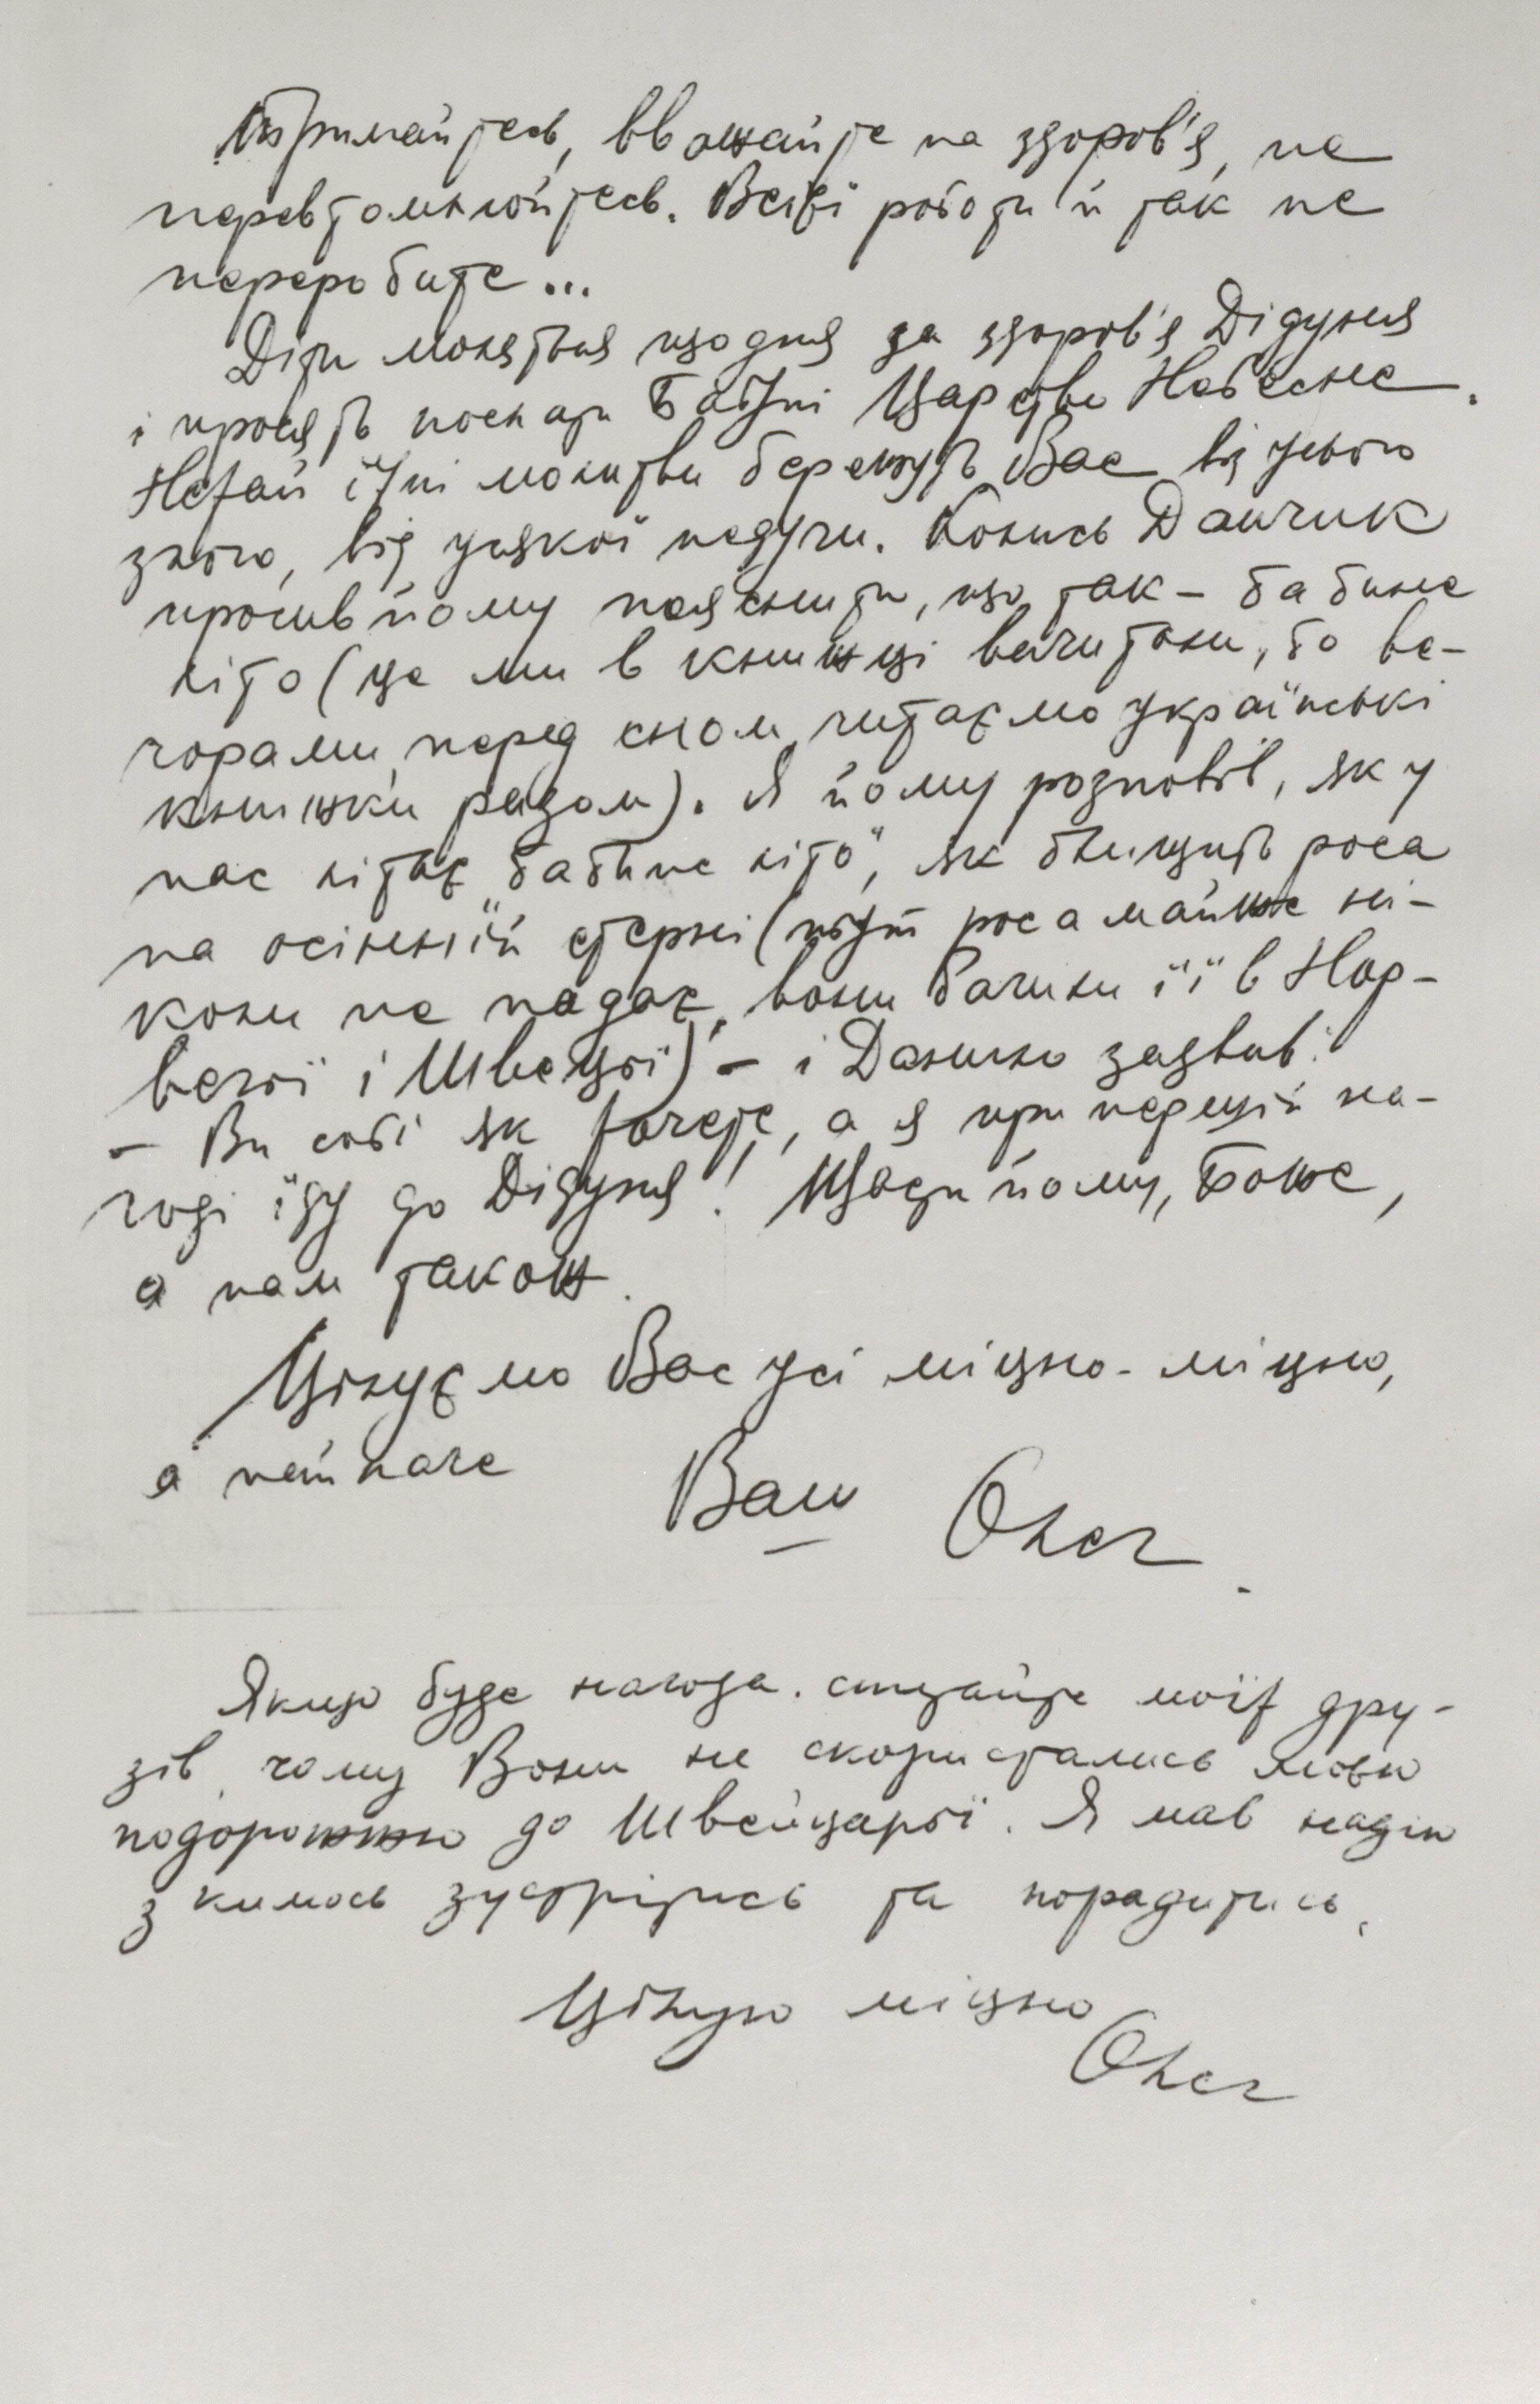 Тримайтесь, вважайте на здоров'я, не
перевтомлюйтесь. Всієї роботи й так не
переробите...
Діти моляться щодня за здоров'я Дідуня
і просять послати Бабуні Царство Небесне.
Нехай їхні молитви бережуть Вас від усього
злого, від усякої недуги. Колись Данчик
просив йому пояснити, що так – бабине
літо (це ми в книжці вичитали, бо ве-
чорами, перед сном, читаємо українські
книжки разом). Я йому розповів, як у
нас літає „бабине літо", як блищить роса
на осінній стерні (тут роса майже ні-
коли не падає, вони бачили її в Нор-
вегії і Швеції) – і Данило заявив:
– Ви собі як хочете, а я при першій на-
годі їду до Дідуня! Щасти йому, Боже,
а нам також.
Цілуємо Вас усі міцно-міцно,
а найпаче Ваш Олег.
Якщо буде нагода. спитайте моїх дру-
зів, чому Вони не скористались
подорожжю до Швейцарії. Я мав надію
з кимось зустрітись та порадитись.
Цілую міцно
Олег